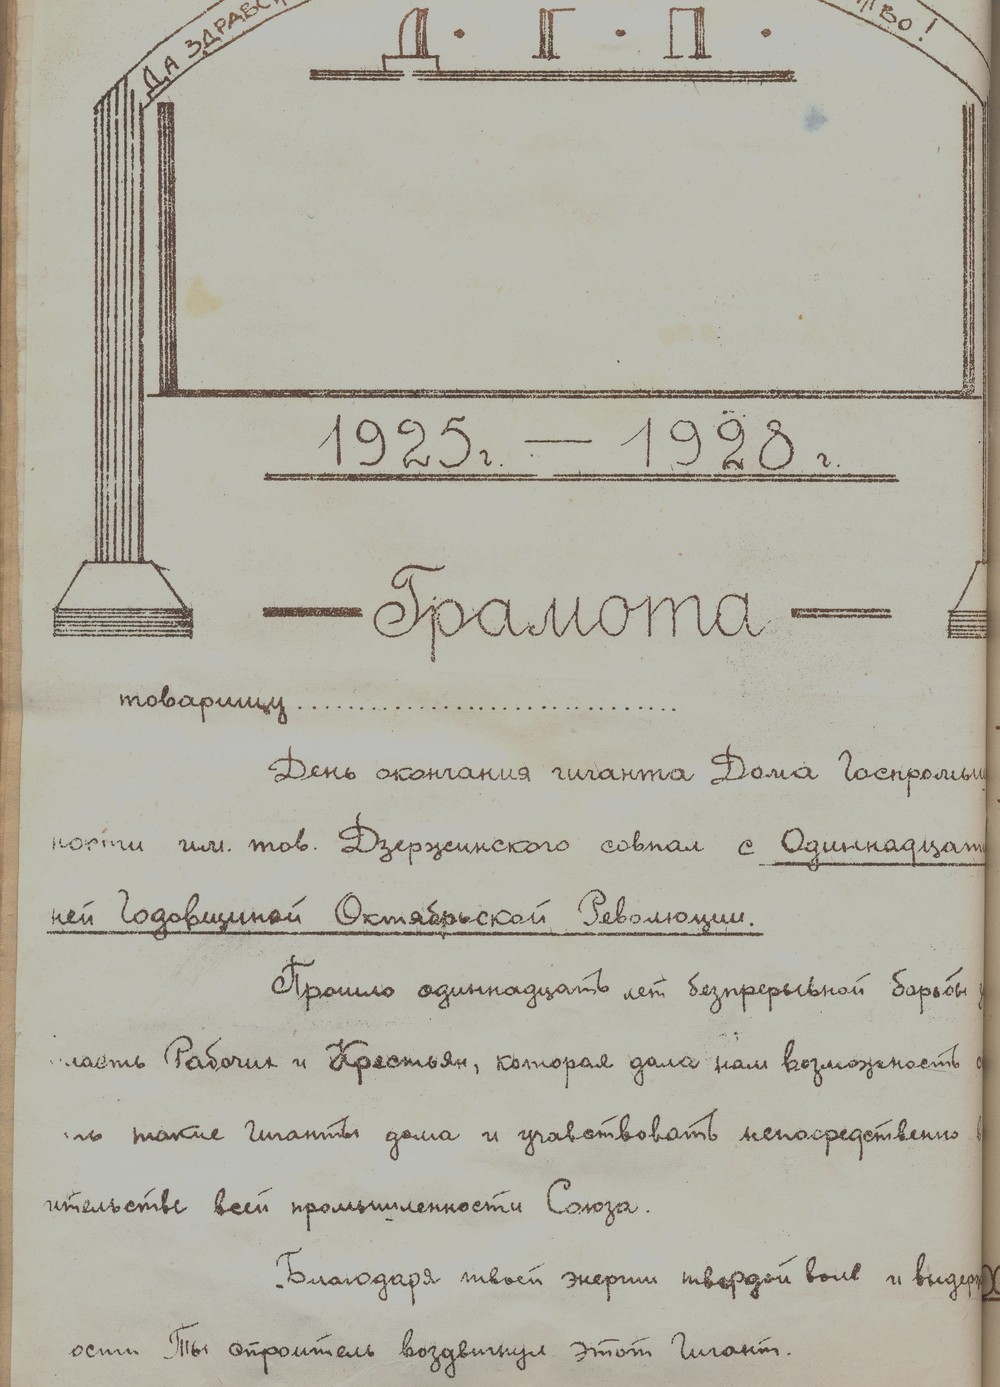 ДА ЗДРАВС
ТВО!
Д. Г. П.
1925г. — 1928г.
Грамота
товарищу
День окончания гиганта Дома Госпромыш
ности им. тов. Дзержинского совпал с Одиннадцат
ней Годовщиной Октябрьской Революции.
Прошло одиннадцать лет безпрерывной борьбы
ласть Рабочих и Крестьян, которая дала нам возможность
такие Гиганты дома и учавствовать непосредственно
ительстве всей промышленности Союза.
Благодаря твоей энергии твердой воле и выдерж
ости Ты строитель воздвигнул этот Гигант.